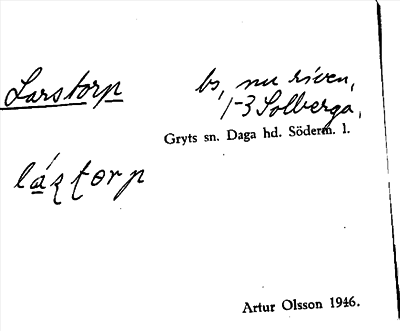 Larstorp
bs, nu riven,
1-3 Solberga,
Gryts sn. Daga hd. Söderm. l.
láʂʈorp
Artur Olsson 1946.